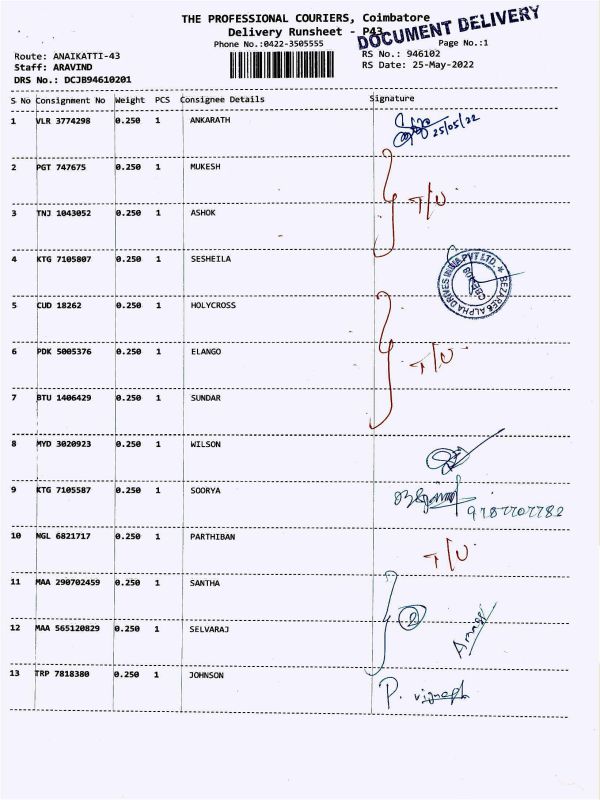 THE PROFESSIONAL COURIERS, Coimbatore
Delivery Runsheet - P43
DOCUMENT DELIVERY
Phone No.:0422-3505555 Page No.:1
Route: ANAIKATTI-43 RS No.: 946102
Staff: ARAVIND RS Date: 25-May-2022
DRS No.: DCJB94610201
S No Consignment No Weight PCS Consignee Details Signature
1 VLR 3774298 0.250 1 ANKARATH 25/05/22
2 PGT 747675 0.250 1 MUKESH
T/U
3 TNJ 1043052 0.250 1 ASHOK
4 KTG 7105807 0.250 1 SESHEILA
5 CUD 18262 0.250 1 HOLYCROSS
6 PDK 5005376 0.250 1 ELANGO T/U
7 BTU 1406429 0.250 1 SUNDAR
8 MYD 3020923 0.250 1 WILSON
9 KTG 7105587 0.250 1 SOORYA 9787707782
10 NGL 6821717 0.250 1 PARTHIBAN T/U
11 MAA 290702459 0.250 1 SANTHA
2
12 MAA 565120829 0.250 1 SELVARAJ
13 TRP 7818380 0.250 1 JOHNSON P. vignesh